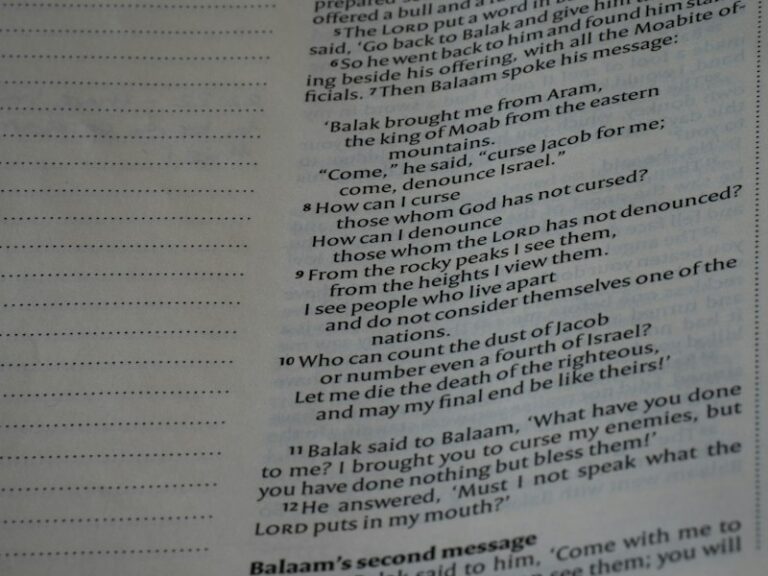 prepared
offered a bull and a
5 The LORD put a word in
said, ‘Go back to Balak and give him
6 So he went back to him and found him stand-
ing beside his offering, with all the Moabite of-
ficials. 7 Then Balaam spoke his message:
‘Balak brought me from Aram,
the king of Moab from the eastern
mountains.
“Come,” he said, “curse Jacob for me;
come, denounce Israel.”
8 How can I curse
those whom God has not cursed?
How can I denounce
those whom the LORD has not denounced?
9 From the rocky peaks I see them,
from the heights I view them.
I see people who live apart
and do not consider themselves one of the
nations.
10 Who can count the dust of Jacob
or number even a fourth of Israel?
Let me die the death of the righteous,
and may my final end be like theirs!’
11 Balak said to Balaam, ‘What have you done
to me? I brought you to curse my enemies, but
you have done nothing but bless them!’
12 He answered, ‘Must I not speak what the
LORD puts in my mouth?’
Balaam’s second message
said to him, ‘Come with me to
see them; you will